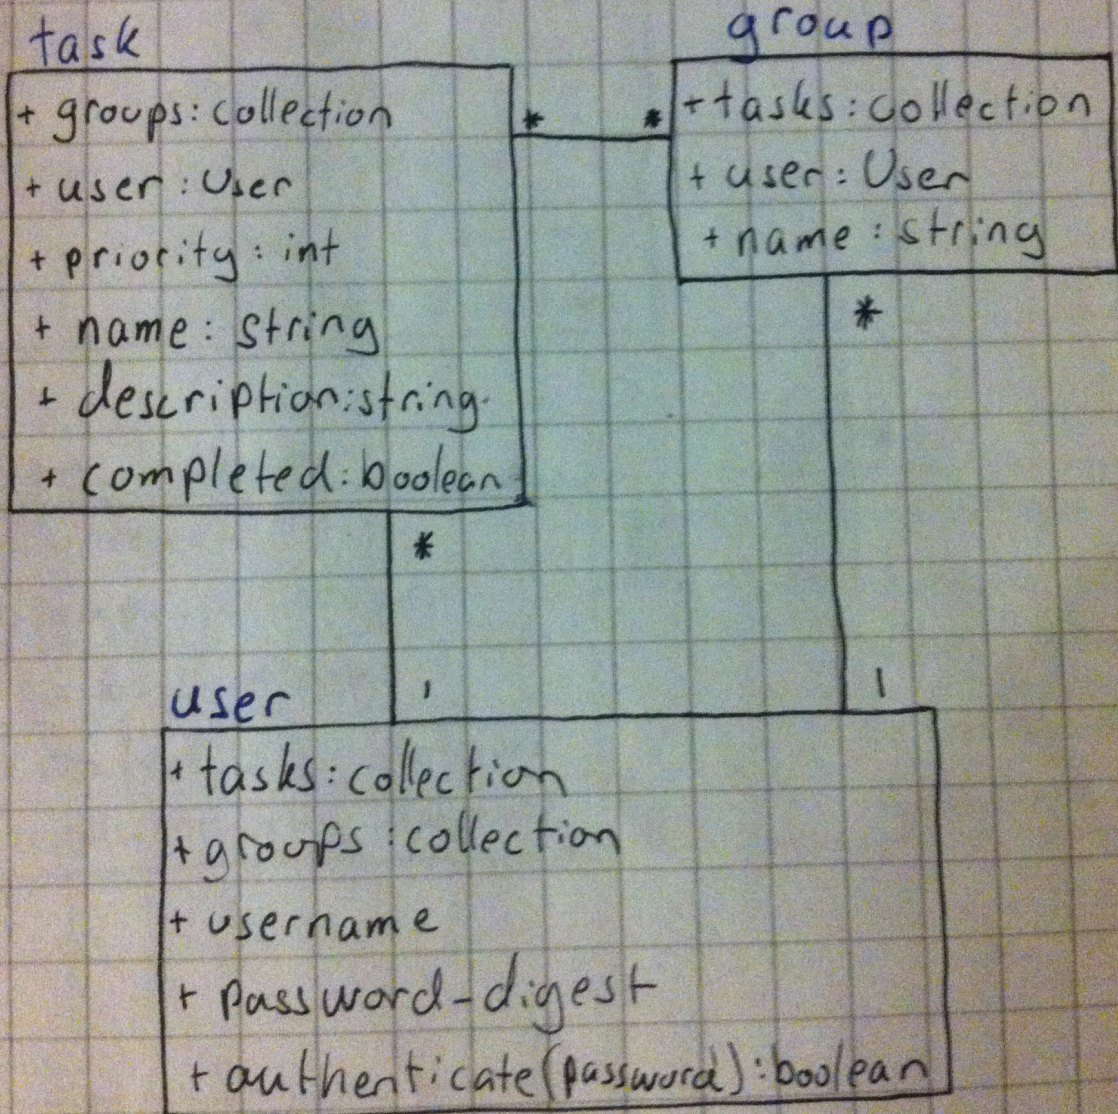 task
+ groups: collection
+ user: User
+ priority: int
+ name: string
+ description: string
+ completed: boolean
* *
group
+ tasks: collection
+ user: User
+ name: string
*
*
1
1
user
+ tasks: collection
+ groups: collection
+ username
+ password_digest
+ authenticate(password): boolean